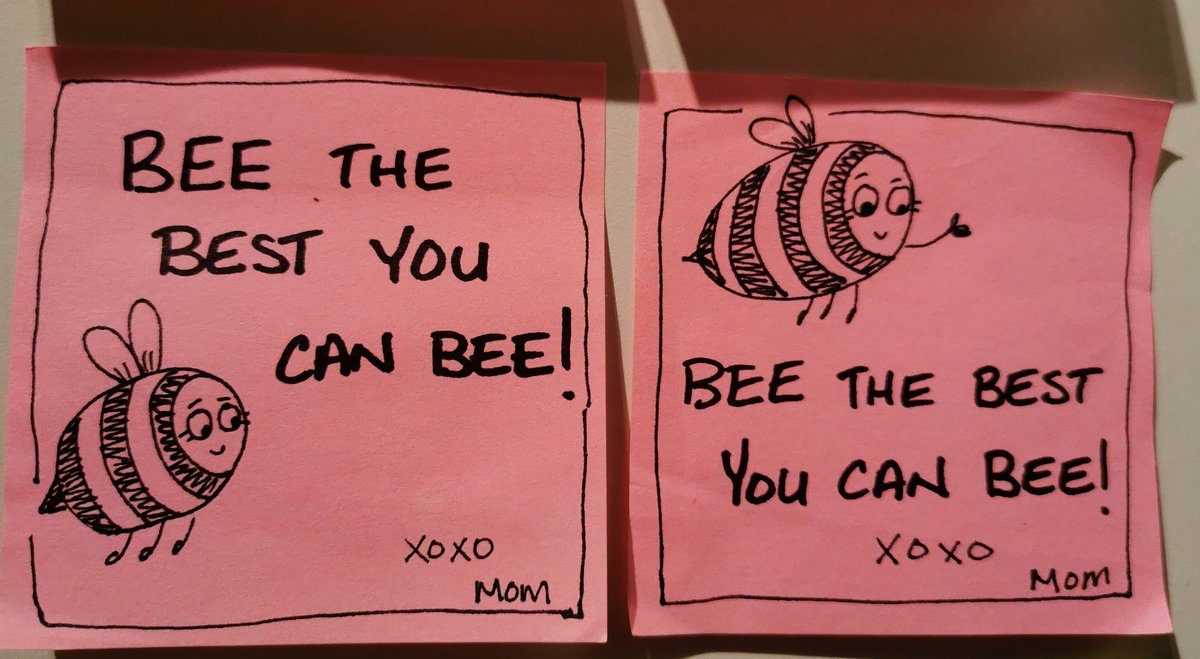 BEE THE
BEST YOU
CAN BEE!
XOXO
MOM
BEE THE BEST
YOU CAN BEE!
XOXO
MOM